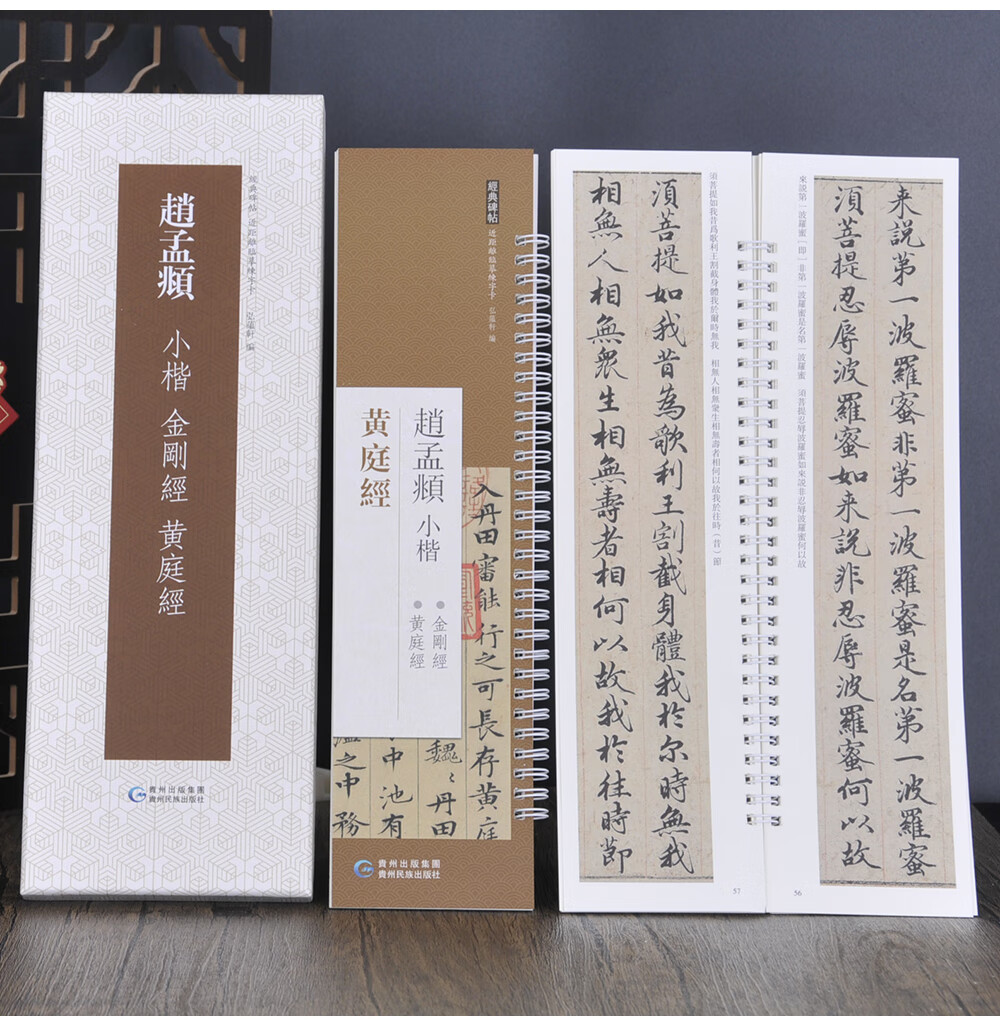 趙孟頫 小楷 金剛經 黄庭經
經典碑帖 近距離臨摹練字卡 弘蕴軒 編
貴州出版集團
貴州民族出版社
經典碑帖 近距離臨摹練字卡 弘蕴軒 編
趙孟頫 小楷
黄庭經
金剛經
黄庭經
入丹田審能行之可長存黄庭
魏〻丹田
中池有
之中務
貴州出版集團
貴州民族出版社
来説第一波羅蜜非第一波羅蜜是名第一波羅蜜
須菩提忍辱波羅蜜如来説非忍辱波羅蜜何以故
來説第一波羅蜜(即)非第一波羅蜜是名第一波羅蜜 須菩提忍辱波羅蜜如來説非忍辱波羅蜜何以故
56
須菩提如我昔為歌利王割截身體我於尔時無我
相無人相無衆生相無壽者相何以故我於往時節
須菩提如我昔爲歌利王割截身體我於爾時無我 相無人相無衆生相無壽者相何以故我於往時(昔)節
57